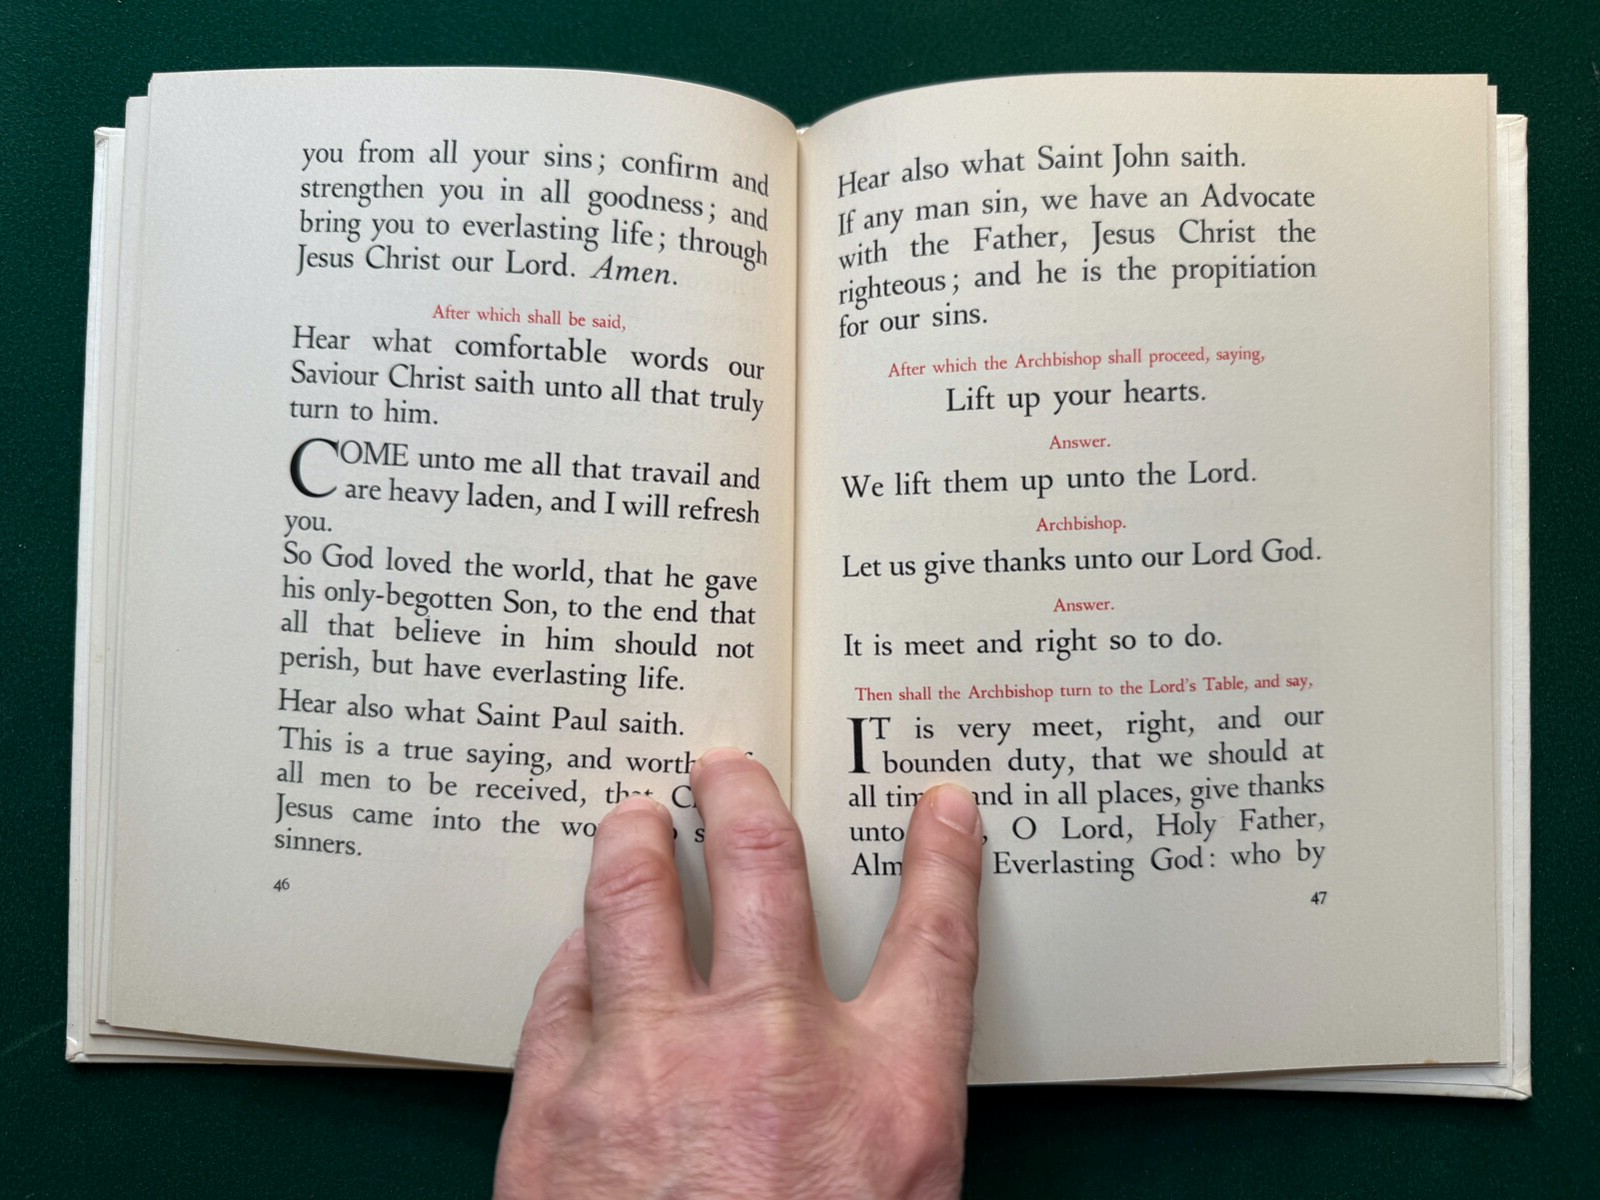 you from all your sins; confirm and
strengthen you in all goodness; and
bring you to everlasting life; through
Jesus Christ our Lord. Amen.
After which shall be said,
Hear what comfortable words our
Saviour Christ saith unto all that truly
turn to him.
COME unto me all that travail and
are heavy laden, and I will refresh
you.
So God loved the world, that he gave
his only-begotten Son, to the end that
all that believe in him should not
perish, but have everlasting life.
Hear also what Saint Paul saith.
This is a true saying, and
all men to be received, that
Jesus came into the
sinners.
46
Hear also what Saint John saith.
If any man sin, we have an Advocate
with the Father, Jesus Christ the
righteous; and he is the propitiation
for our sins.
After which the Archbishop shall proceed, saying,
Lift up your hearts.
Answer.
We lift them up unto the Lord.
Archbishop.
Let us give thanks unto our Lord God.
Answer.
It is meet and right so to do.
Then shall the Archbishop turn to the Lord's Table, and say,
IT is very meet, right, and our
bounden duty, that we should at
all and in all places, give thanks
unto O Lord, Holy Father,
Everlasting God: who by
47